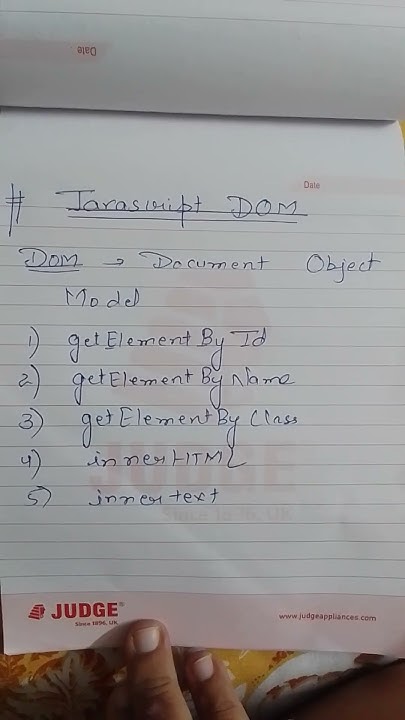 Date
Date
# Javascript DOM
DOM → Document Object
Model
1) getElement By Id
2) getElement By Name
3) getElement By Class
4) innerHTML
5) innertext
JUDGE
Since 1896, UK
JUDGE®
Since 1896, UK
www.judgeappliances.com